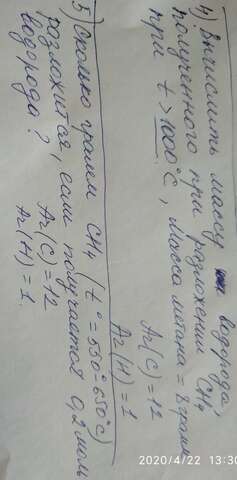 4) Вычислить массу водорода,
полученного при разложении CH4
при t > 1000°C, Масса метана = 8 грамм
Ar(C) = 12
Ar(H) = 1
5) Сколько грамм CH4 (t° = 550°-650°C)
разложится, если получается 0,2 моль
водорода? Ar(C) = 12
Ar(H) = 1.
2020/4/22 13:30